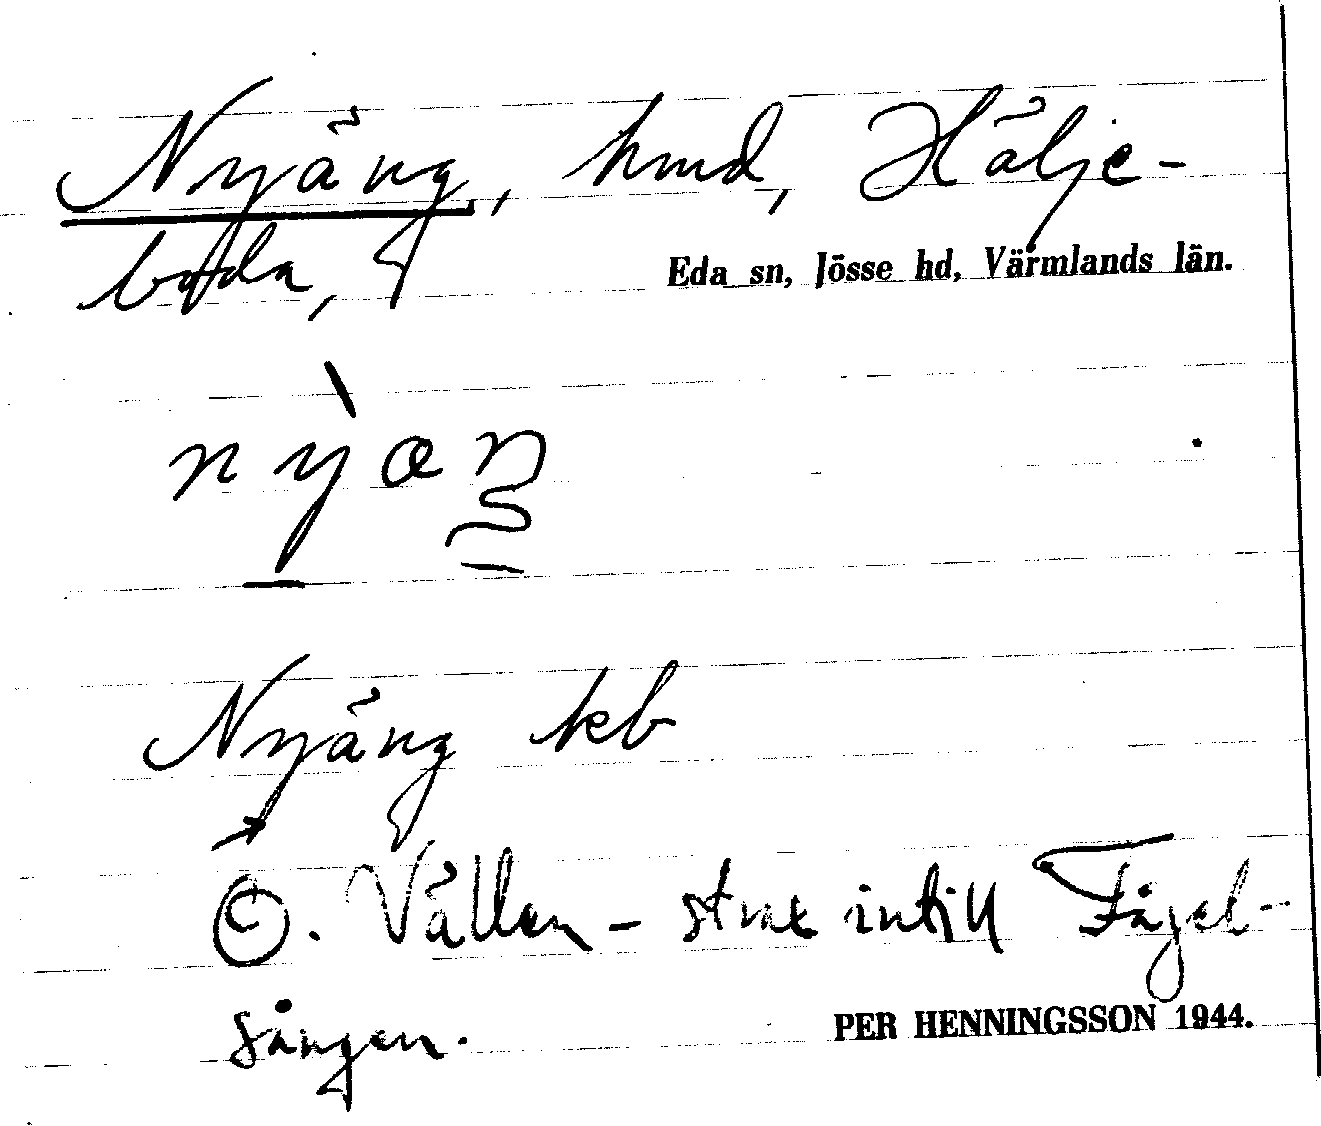 Nyäng, hmd, Hälje-
boda,
Eda sn, Jösse hd, Värmlands län.
Nyäng kb
Vällen - strax intill Fågel-
sången.
PER HENNINGSSON 1944.